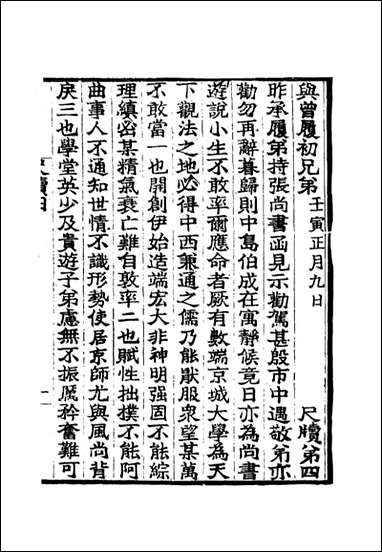 與曾履初兄弟 壬寅正月九日 尺牘弟四
昨承履弟持張尚書函見示勸駕甚殷市中遇敬弟亦
勸勿再辭暮歸則中島伯成在寓靜候竟日亦為尚書
遊說小生不敢率爾應命者厥有數端京城大學為天
下觀法之地必得中西兼通之儒乃能猒服衆望某萬
不敢當一也開創伊始造端宏大非神明强固不能綜
理縝密某精氣衰亡難自敦率二也賦性拙撲不能阿
曲事人不通知世情不識形勢使居京師尤與風尚背
戾三也學堂英少及貴遊子弟慮無不振厲矜奮難可
尺牘四 一